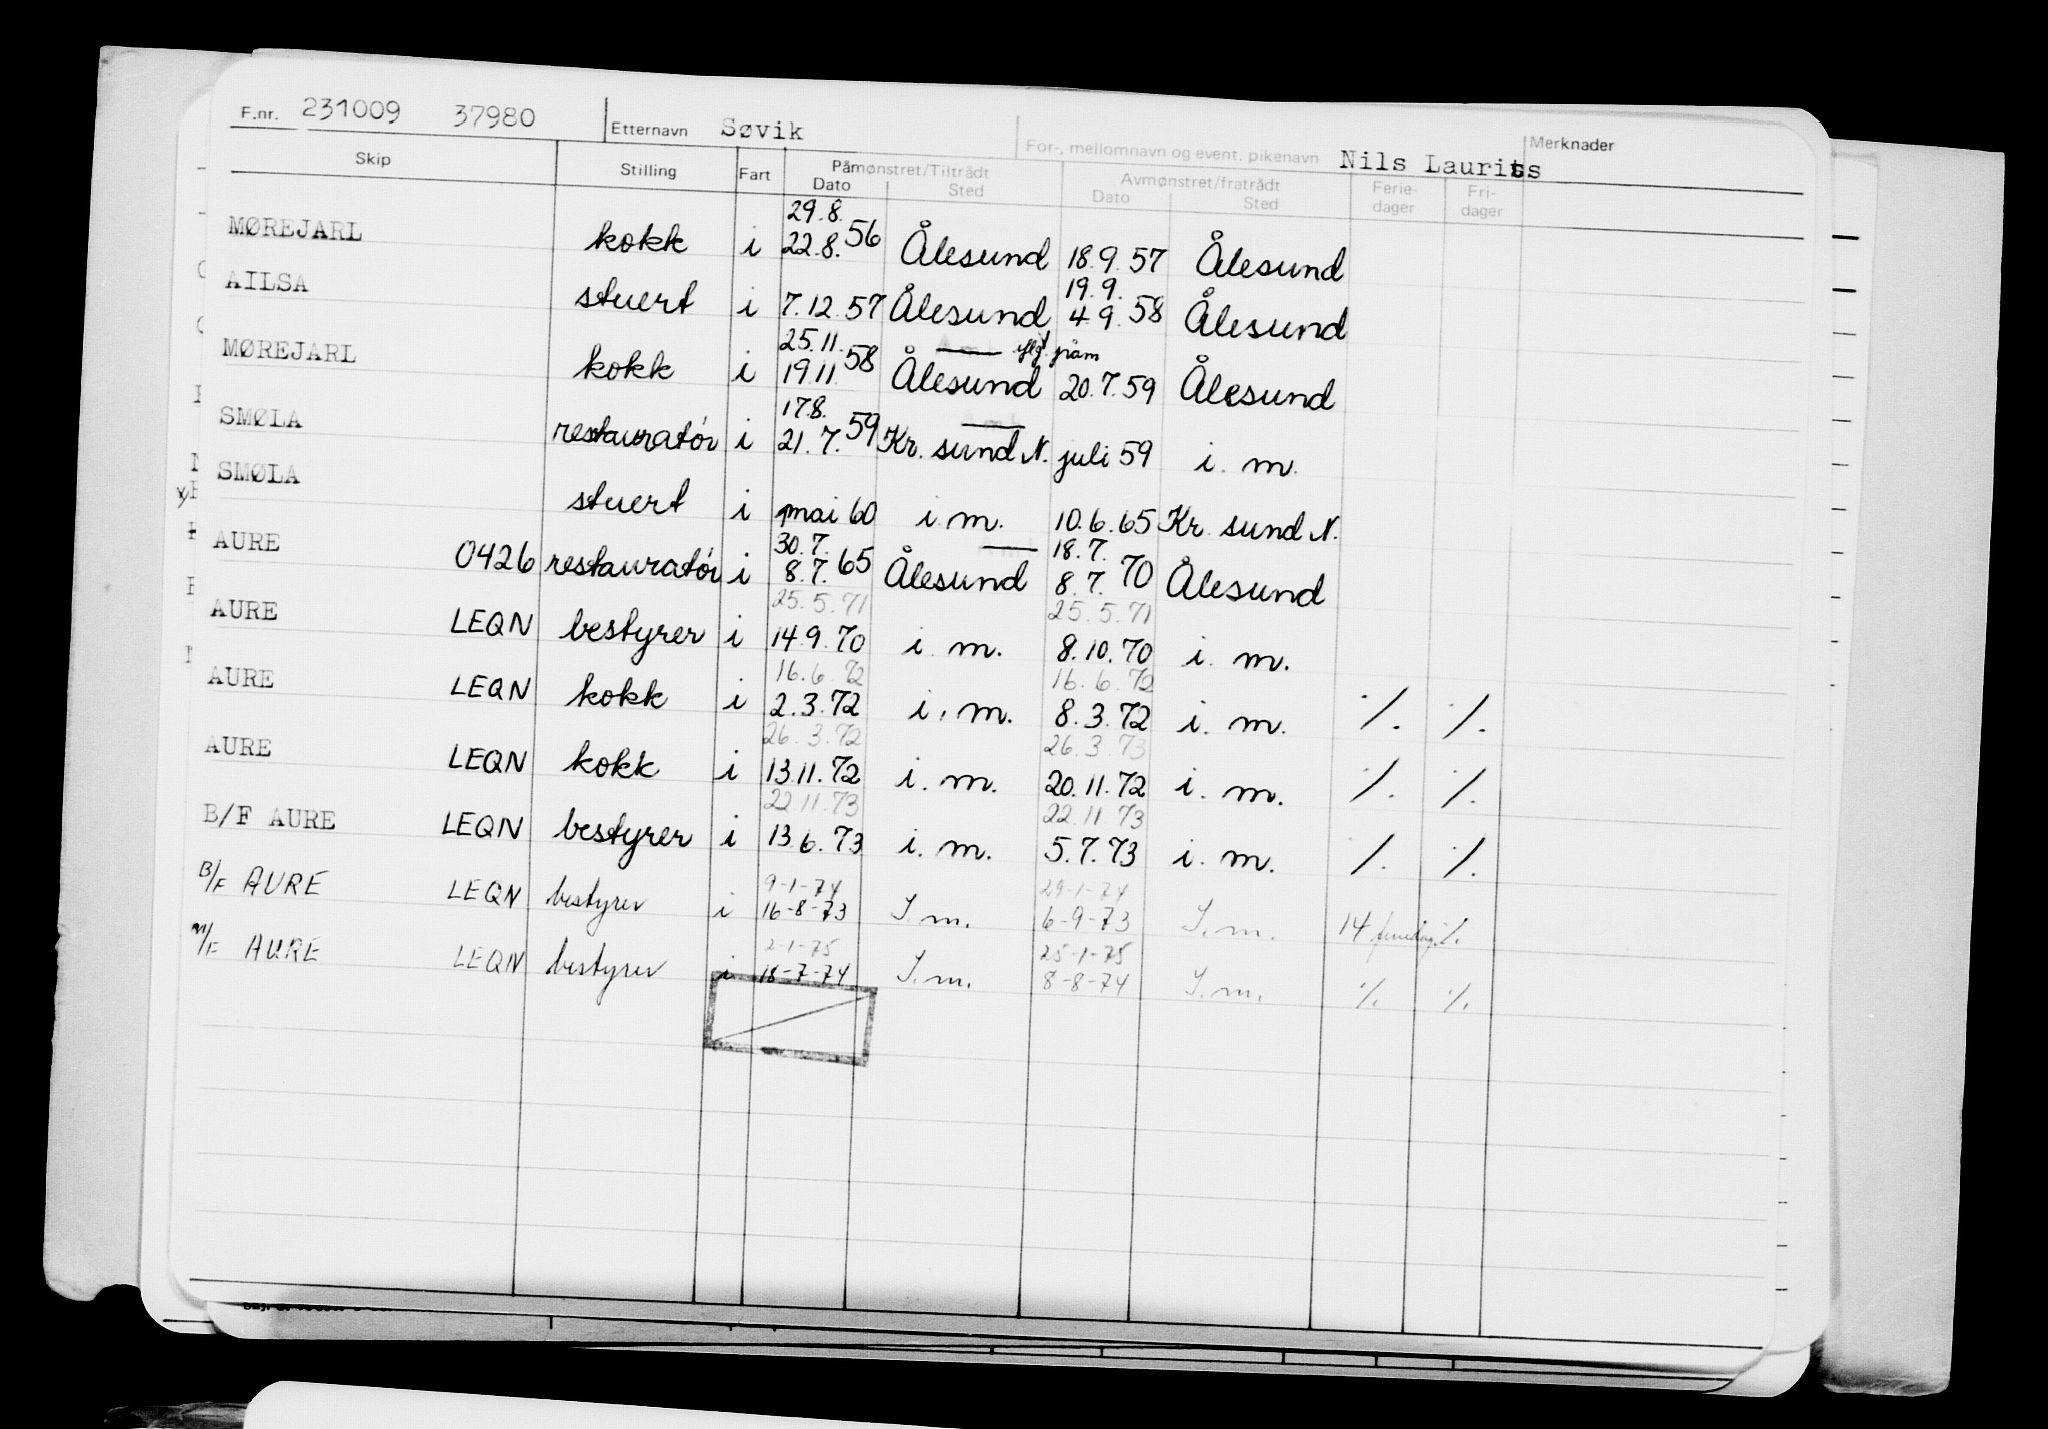 F.nr. 231009 37980 Etternavn Søvik For-, mellomnavn og event. pikenavn Nils Laurits Merknader
Skip Stilling Fart Påmønstret/Tiltrådt Avmønstret/fratrådt Ferie- Fri-
Dato Sted Dato Sted dager dager
29.8.
MØREJARL kokk i 22.8. 56 Ålesund 18.9.57 Ålesund
19.9.
AILSA stuert i 7.12.57 Ålesund 4.9.58 Ålesund
25.11.
MØREJARL kokk i 19.11.58 Ålesund 20.7.59 Ålesund
17.8.
SMØLA restauratór i 21.7.59 Kr. sund N. juli 59 i. m.
SMØLA stuert i mai 60 i. m. 10.6.65 Kr. sund N.
30.7. 18.7.
AURE 0426 restauratór i 8.7.65 Ålesund 8.7.70 Ålesund
25.5.71 25.5.71
AURE LEQN bestyrer i 14.9.70 i. m. 8.10.70 i. m.
16.6.72 16.6.72
AURE LEQN kokk i 2.3.72 i. m. 8.3.72 i. m. ·/. ·/.
26.3.72 26.3.73
AURE LEQN kokk i 13.11.72 i. m. 20.11.72 i. m. ·/. ·/.
22.11.73 22.11.73
B/F AURE LEQN bestyrer i 13.6.73 i. m. 5.7.73 i. m. ·/. ·/.
9-1-74 29-1-74
B/F AURE LEQN bestyrer i 16-8-73 I. m. 6-9-73 I. m. 14 ·/.
2-1-75 25-1-75
M/F AURE LEQN bestyrer i 18-7-74 I. m. 8-8-74 I. m. ·/. ·/.